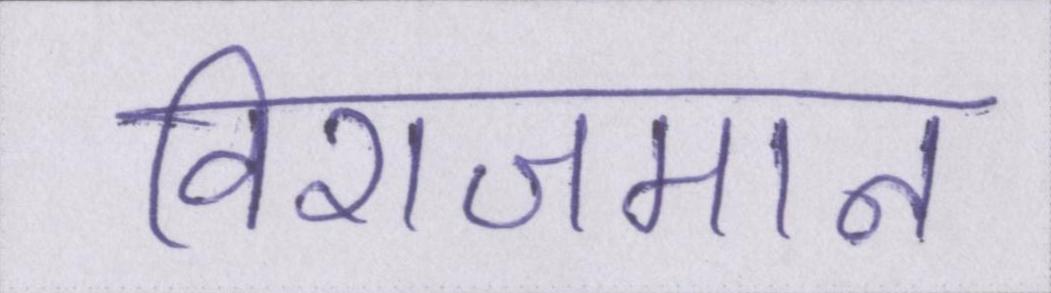 विराजमान